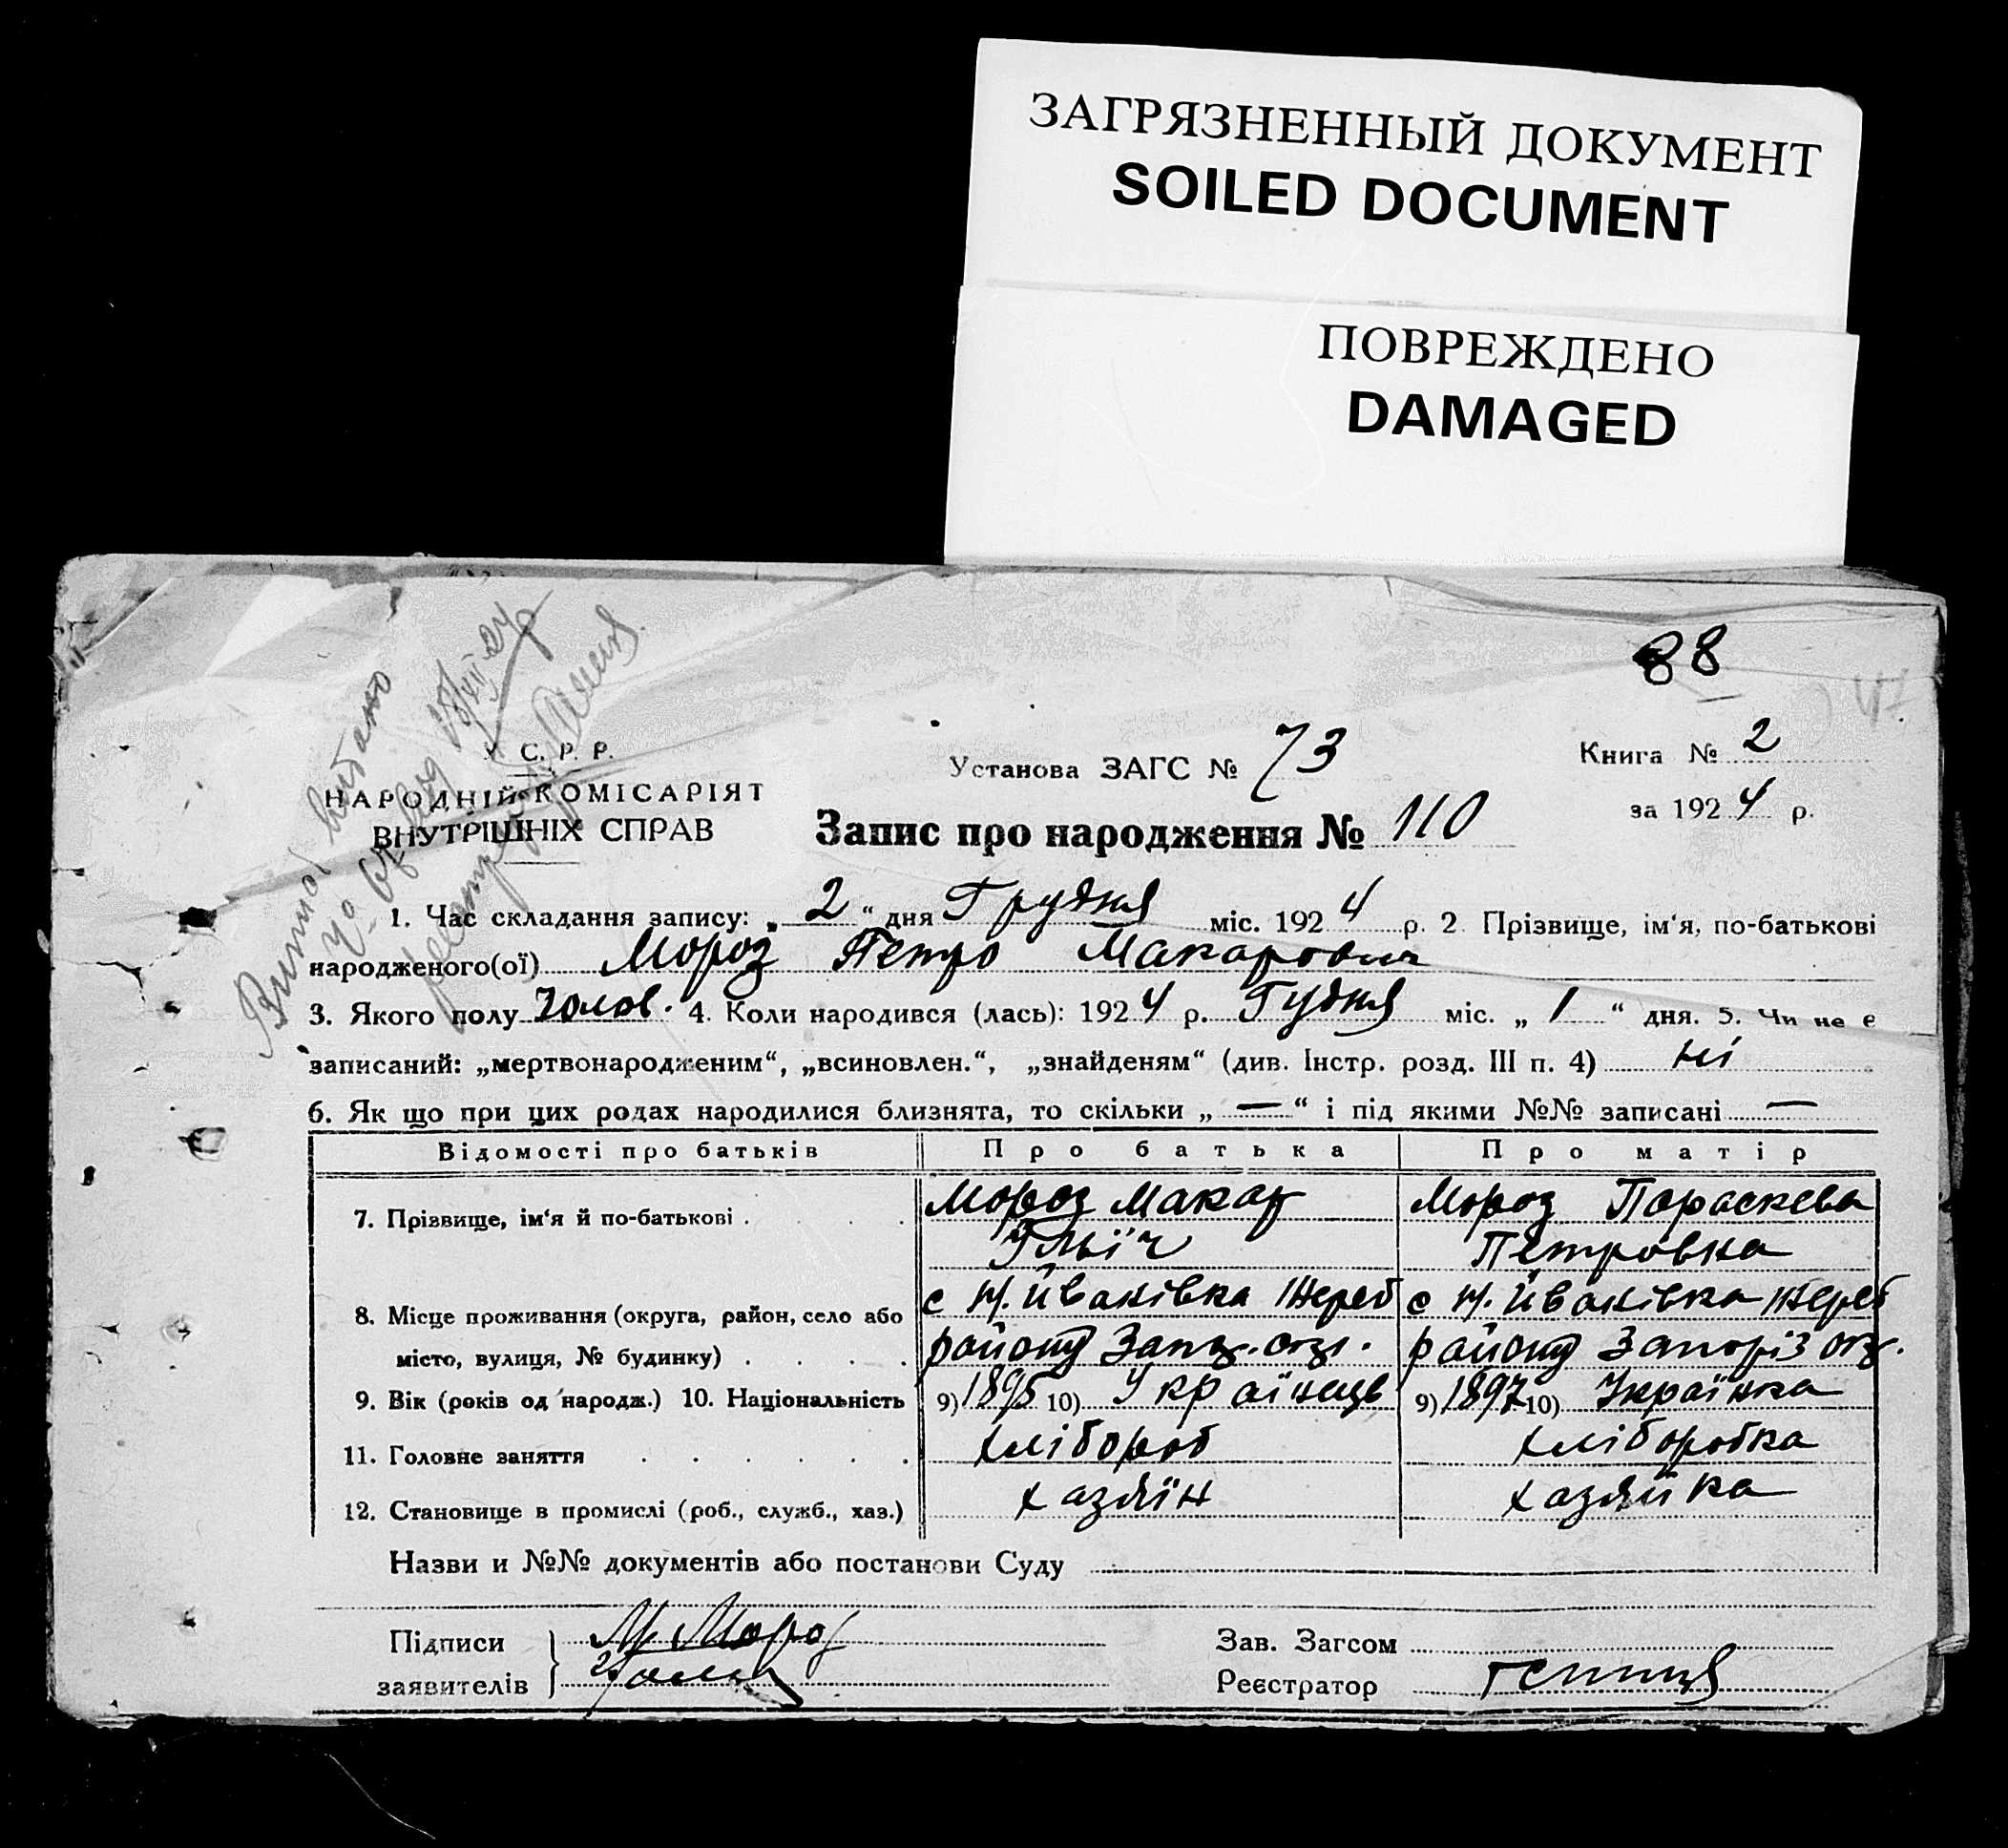 ЗАГРЯЗНЕННЫЙ ДОКУМЕНТ
SOILED DOCUMENT
ПОВРЕЖДЕНО
DAMAGED
88
Витяг видано
У. С. Р. Р.
НАРОДНІЙ КОМІСАРІЯТ
ВНУТРІШНІХ СПРАВ
Установа ЗАГС № 73
Книга № 2
за 1924 р.
Запис про народження № 110
1. Час складання запису: „ 2 “ дня Грудня міс. 1924 р. 2. Прізвище, ім'я, по-батькові
народженого(ої) Мороз Петро Макарович
3. Якого полу чолов. 4. Коли народився (лась): 1924 р. Гудня міс. „ 1 “ дня. 5. Чи не є
записаний: „мертвонародженим“, „всиновлен.“, „знайденям“ (див. Інстр. розд. III п. 4) ні
6. Як що при цих родах народилися близнята, то скільки „ — “ і під якими №№ записані —
Відомості про батьків Про батька Про матір
7. Прізвище, ім'я й по-батькові . . . . Мороз Макар Мороз Параскева
Ілыїч Петровна
8. Місце проживання (округа, район, село або с Н. Йваківка Жереб с Н. Йваківка Жереб
місто, вулиця, № будинку) . . . . району Запор. окр. району Запоріз окр.
9. Вік (років од народж.) 10. Національність 9) 1895 10) Українець 9) 1897 10) Українка
11. Головне заняття . . . . . . хлібороб хліборобка
12. Становище в промислі (роб., служб., хаз.) хазяїн хазяйка
Назви и №№ документів або постанови Суду
Підписи М. Мороз Зав. Загсом
заявителів Реєстратор